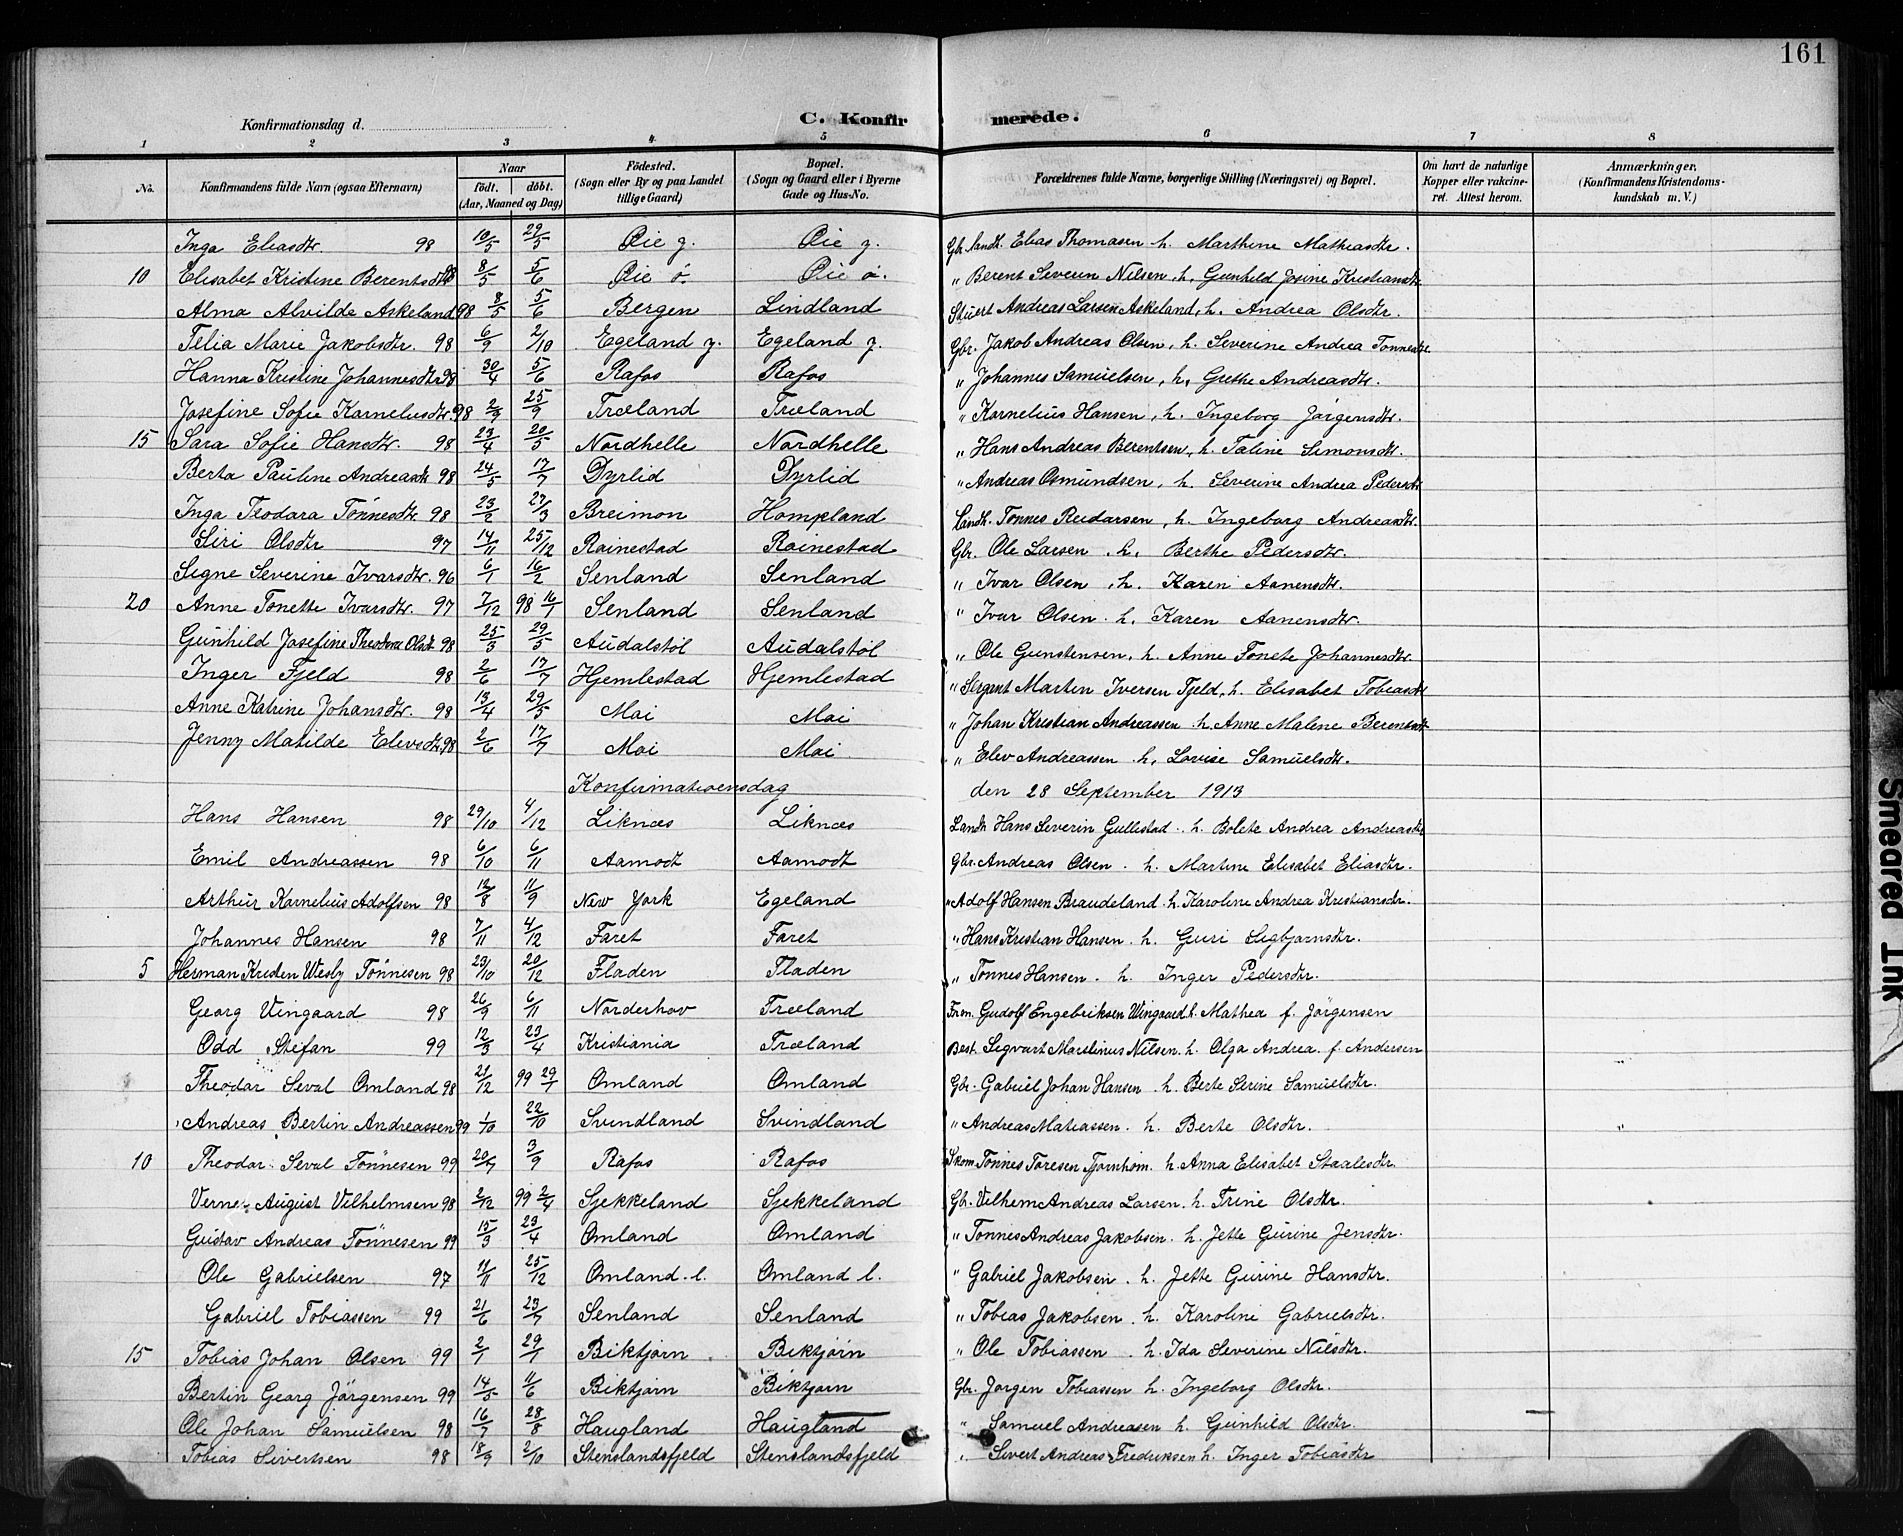 161
Konfirmationsdag d.
C. Konfirmerede.
1 2 3 4 5 6 7 8
No. Konfirmandens fulde Navn (ogsaa Efternavn) Naar født. døbt. (Aar, Maaned og Dag) Födested. (Sogn eller By og paa Landet tillige Gaard) Bopæl. (Sogn og Gaard eller i Byerne Gade og Hus-No. Forældrenes fulde Navne, borgerlige Stilling (Næringsvei) og Bopæl. Om havt de naturlige Kopper eller vakcineret. Attest herom. Anmærkninger, (Konfirmandens Kristendomskundskab m. V.)
Inga Eliasdtr. 98 10/5 29/5 Øie y. Øie y. Gbr. landh. Elias Thomasen h. Marthine Mathiasdtr.
10 Elisabet Kristine Berentsdtr 98 8/5 5/6 Øie ø. Øie ø. " Berent Severin Nilsen, h. Gunhild Josine Kristiansdtr
Alma Alvilde Askeland 98 8/5 5/6 Bergen Lindland Stuert Andreas Larsen Askeland, h. Andrea Olsdtr.
Telia Marie Jakobsdtr. 98 6/9 2/10 Egeland y. Egeland y. Gbr. Jakob Andreas Olsen, h. Severine Andrea Tønnesdtr
Hanna Kristine Johannesdtr 98 30/4 5/6 Rafos Rafos " Johannes Samuelsen, h. Grethe Andreasdtr.
Josefine Sofie Karneliusdtr. 98 2/9 25/9 Træland Træland " Karnelius Hansen, h. Ingeborg Jørgensdtr.
15 Sara Sofie Hansdtr. 98 23/4 20/5 Nordhelle Nordhelle " Hans Andreas Berentsen, h. Taline Simonsdtr.
Berta Pauline Andreasdtr 98 24/5 17/7 Dyrlid Dyrlid " Andreas Osmundsen, h. Severine Andrea Pedersdtr
Inga Teodara Tønnesdtr. 98 23/2 27/3 Breimon Hompland Landh. Tønnes Reidarsen, h. Ingeborg Andreasdtr.
Siri Olsdtr 97 14/11 25/12 Rainestad Rainestad Gbr. Ole Larsen, h. Berthe Pedersdtr.
Signe Severine Ivarsdtr. 96 6/1 16/2 Senland Senland " Ivar Olsen, h. Karen Aanensdtr.
20 Anne Tonette Ivarsdtr. 97 7/12 98 16/1 Senland Senland " Ivar Olsen h. Karen Aanensdtr.
Gunhild Josefine Theodora Olsdt 98 25/3 29/5 Audalstøl Audalstøl " Ole Gunstensen, h. Anne Tonete Johannesdtr.
Inger Fjeld 98 2/6 17/7 Hjemlestad Hjemlestad " Sergent Martin Iversen Fjeld, h. Elisabet Tobiasdtr
Anne Katrine Johansdtr. 98 13/4 29/5 Moi Moi " Johan Kristian Andreassen h. Anne Malene Berentsdtr
Jenny Matilde Elevsdtr 98 2/6 17/7 Moi Moi " Elev Andreassen h. Lovise Samuelsdtr.
Konfirmationsdag den 28 September 1913
Hans Hansen 98 29/10 4/12 Liknæs Liknæs Landh Hans Severin Gullestad h. Bolete Andrea Andreasdtr
Emil Andreassen 98 6/10 6/11 Aamodt Aamodt Gbr. Andreas Olsen h. Martine Elisabet Eliasdtr.
Arthur Karnelius Adolfsen 98 12/8 11/9 New York Egeland " Adolf Hansen Braudeland h. Karoline Andrea Kristiansdtr.
Johannes Hansen 98 7/11 4/12 Faret Faret " Hans Kristian Hansen h. Guri Sigbjørnsdtr.
5 Herman Kristen Wesly Tønnesen 98 23/10 20/12 Fladen Fladen " Tønnes Hansen h. Inger Pedersdtr.
Georg Vingaard 98 26/9 6/11 Norderhov Træland Gudolf Engebriksen Vingaard h. Mathea f. Jörgensen
Odd Stefan 99 12/3 23/4 Kristiania Træland Best. Sigvart Marelinus Nilsen h. Olga Andrea f. Andersen
Theodor Seval Omland 98 21/12 99 29/1 Omland Omland Gbr. Gabriel Johan Hansen h. Berte Serine Samuelsdtr.
Andreas Bertin Andreassen 99 1/10 22/10 Svindland Svindland " Andreas Matiassen h. Berte Olsdtr.
10 Theodor Seval Tønnesen 99 20/7 3/9 Rafos Rafos Skom. Tønnes Toresen Tjørnhom h. Anna Elisabet Staalesdtr.
Verne August Vilhelmsen 98 2/12 99 2/4 Sjekkeland Sjekkeland Gbr. Vilhem Andreas Larsen h. Trine Olsdtr.
Gustav Andreas Tønnesen 99 15/3 23/4 Omland Omland " Tønnes Andreas Jakobsen h. Jette Gurine Jensdtr.
Ole Gabrielsen 97 11/11 25/12 Omland l. Omland l. " Gabriel Jakobsen h. Jette Gurine Hansdtr.
Gabriel Tobiassen 99 21/6 23/7 Senland Senland " Tobias Jakobsen h. Karoline Gabrielsdtr.
15 Tobias Johan Olsen 99 2/1 29/1 Biktjørn Biktjørn " Ole Tobiassen h. Ida Severine Nilsdtr.
Bertin Georg Jörgensen 99 14/5 11/6 Biktjørn Biktjørn Gbr. Jørgen Tobiassen h. Ingeborg Olsdtr.
Ole Johan Samuelsen 98 16/7 28/8 Haugland Haugland " Samuel Andreasen h. Gunhild Olsdtr.
Tobias Sivertsen 98 18/9 2/10 Stenslandsfjeld Stenslandsfjeld " Sivert Andreas Fredriksen h. Inger Tobiasdtr
Smeared Ink